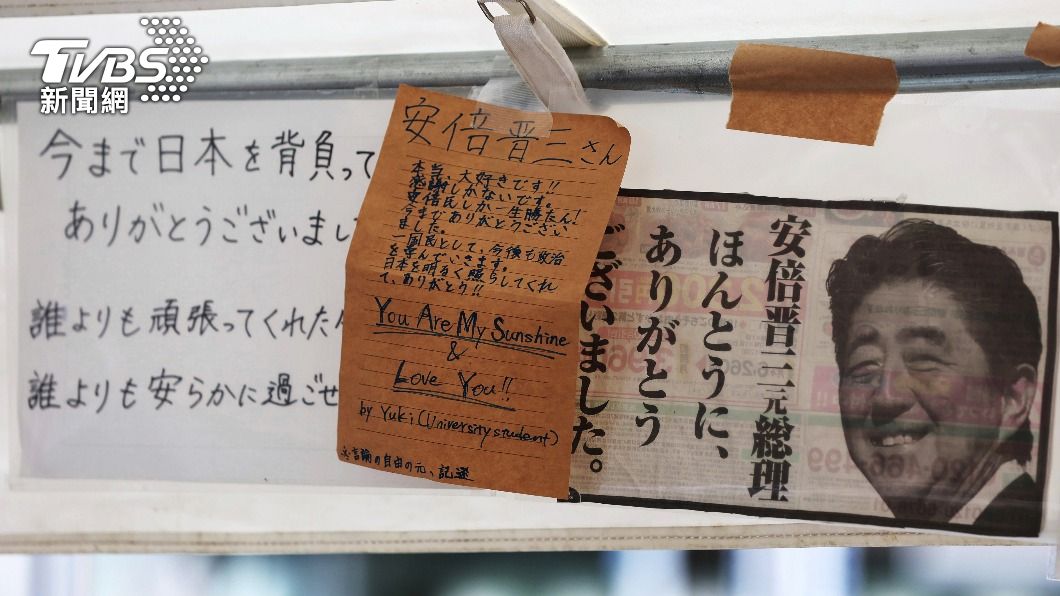 TVBS
新聞網
今まで日本を背負って
ありがとうございまし
誰よりも頑張ってくれた
誰よりも安らかに過ごせ
安倍晋三さん
本当、大好きです!!
感謝しかないです。
安倍氏しか一生勝たん!
今までありがとうござい
ました。
一国民として、今後も政治
を学んでいきます。
日本を明るく照らしてくれ
て、ありがとう!!
You Are My Sunshine
&
Love You!!
by Yuki (University student)
※言論の自由の元、記述
安倍晋三元総理
ほんとうに、
ありがとう
ございました。